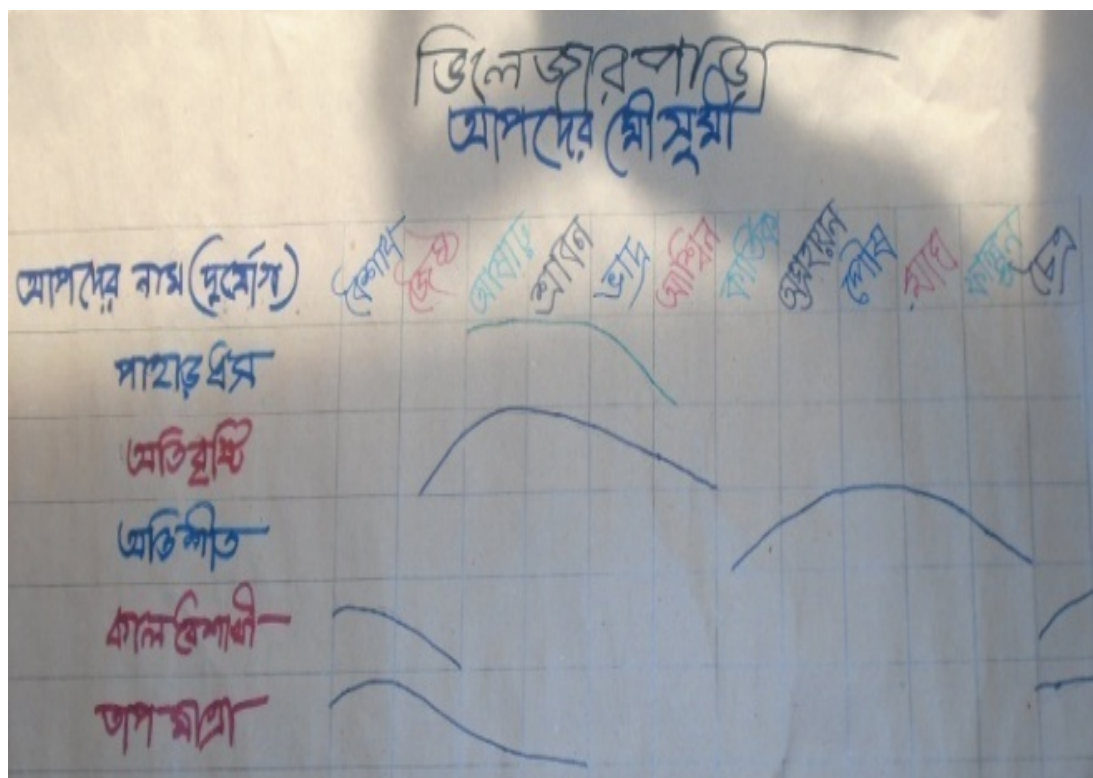 ভিলেজার পাড়া
আপদের মৌসুমী
আপদের নাম (দুর্যোগ) বৈশাখ জৈষ্ঠ আষাঢ় শ্রাবন ভাদ্র আশ্বিন কার্তিক অগ্রহায়ন পৌষ মাঘ ফাল্গুন চৈত্র
পাহাড় ধস
অতিবৃষ্টি
অতি শীত
কাল বৈশাখী
তাপ মাত্রা